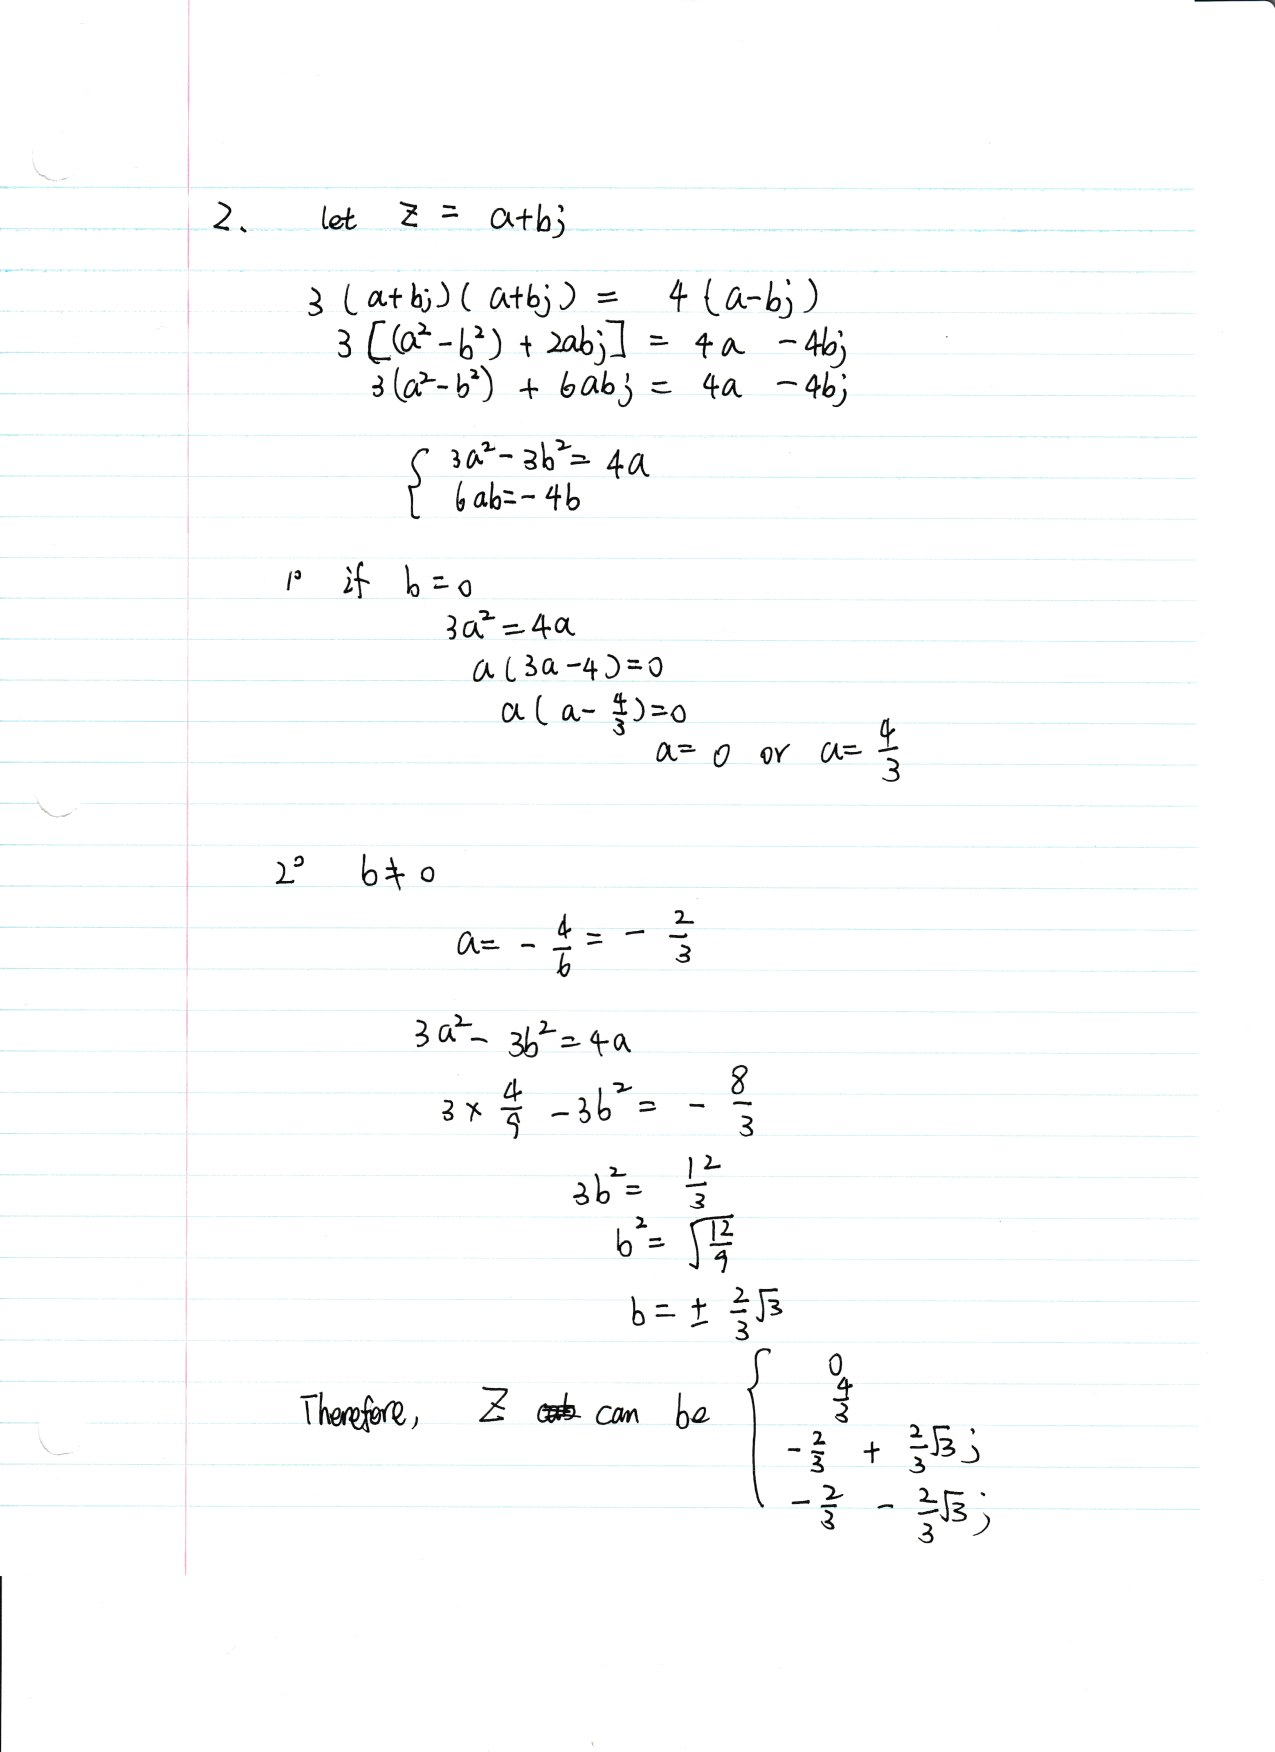 2. let z = a+bj
3 (a+bj)(a+bj) = 4 (a-bj)
3 [(a² - b²) + 2abj] = 4a - 4bj
3(a² - b²) + 6abj = 4a - 4bj
{ 3a² - 3b² = 4a
6ab = - 4b
1° if b = 0
3a² = 4a
a(3a-4) = 0
a(a - 4/3) = 0
a = 0 or a = 4/3
2° b ≠ 0
a = - 4/6 = - 2/3
3a² - 3b² = 4a
3 × 4/9 - 3b² = - 8/3
3b² = 12/3
b² = √(12/9)
b = ± 2/3 √3
Therefore, Z can be { 0
4/3
- 2/3 + 2/3 √3 j
- 2/3 - 2/3 √3 j